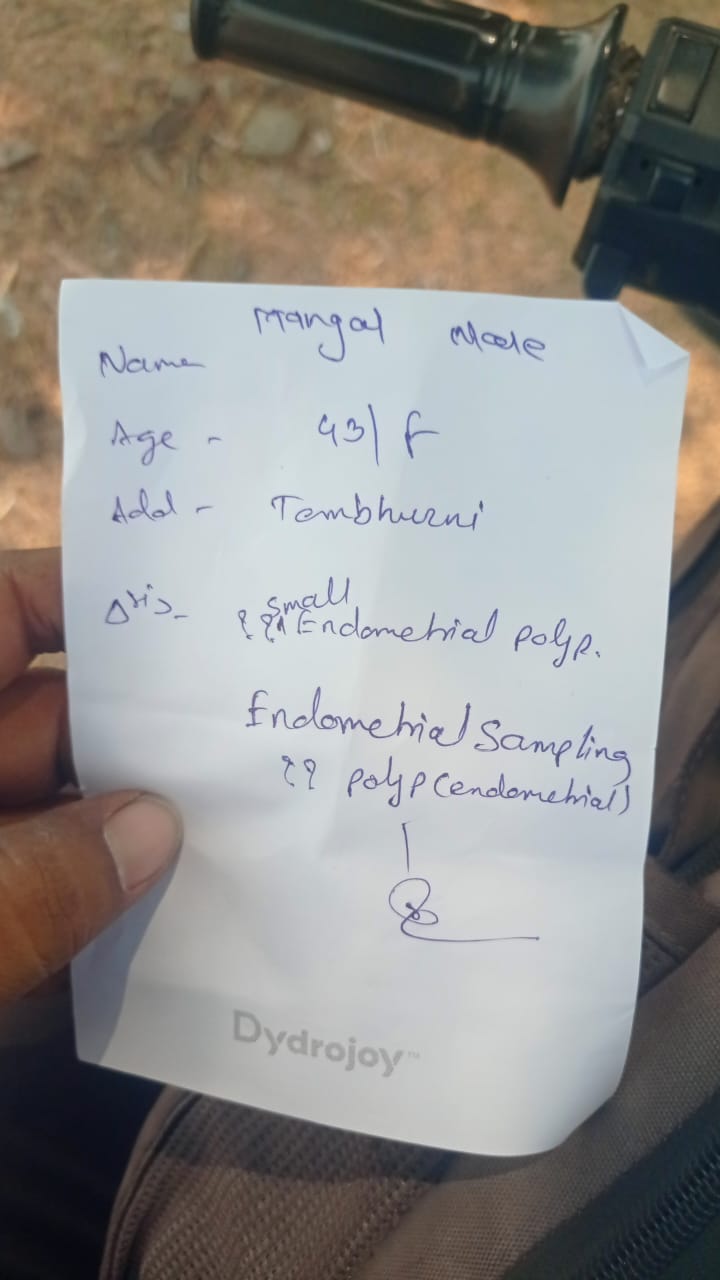 Mangal
Name
Age - 43/F
Add - Tembhurni
small
?? Endometrial polyp.
Endometrial Sampling
?? polyp (endometrial)
Dydrojoy™